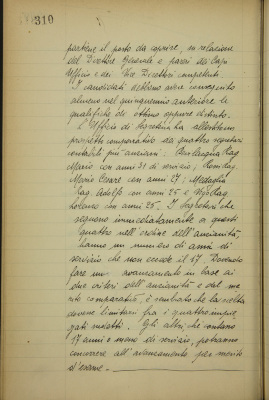 310
partiene il posto da coprire, su relazione
del Direttore Generale e pareri dei Capi
Ufficio e dei Vice Direttori competenti.
I candidati debbono aver conseguito
almeno nel quinquennio anteriore le
qualifiche di ottimo oppure distinto.
L'Ufficio di Segreteria ha allestito un
prospetto comparativo dei quattro segretari
contabili più anziani: Rag.
Mario con anni 31 di servizio,
Mario Cesare con anni 27,
Rag. Adolfo con anni 25 e
Lorenzo con anni 25. I Segretari che
seguono immediatamente a questi
quattro nell'ordine dell'anzianità
hanno un numero di anni di
servizio che non eccede il 17. Dovendo
fare un avanzamento in base ai
due criteri dell'anzianità e del me
rito comparativo, è sembrato che la scelta
dovesse limitarsi fra i quattro impie
gati suddetti. Gli altri, che contano
17 anni e meno di servizio, potranno
concorrere all'avanzamento per merito
d'esame.